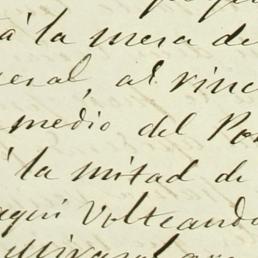 á la mesa de
eral, al rinc
medio del Po
á la mitad de
aqui Volteando